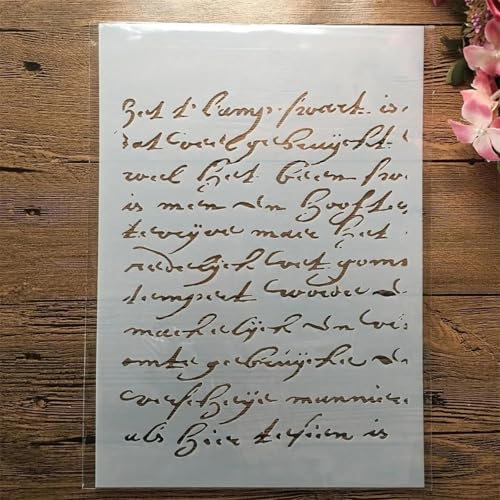 het t' lamp-swart is
dat veel gebruijckt
wel het been sw
is men In hooft
terwijve maer het
redelijck wat goms
tempert worde
mackelijck In
omte gebruijcke In
verscheije manniere
als hier tesien is